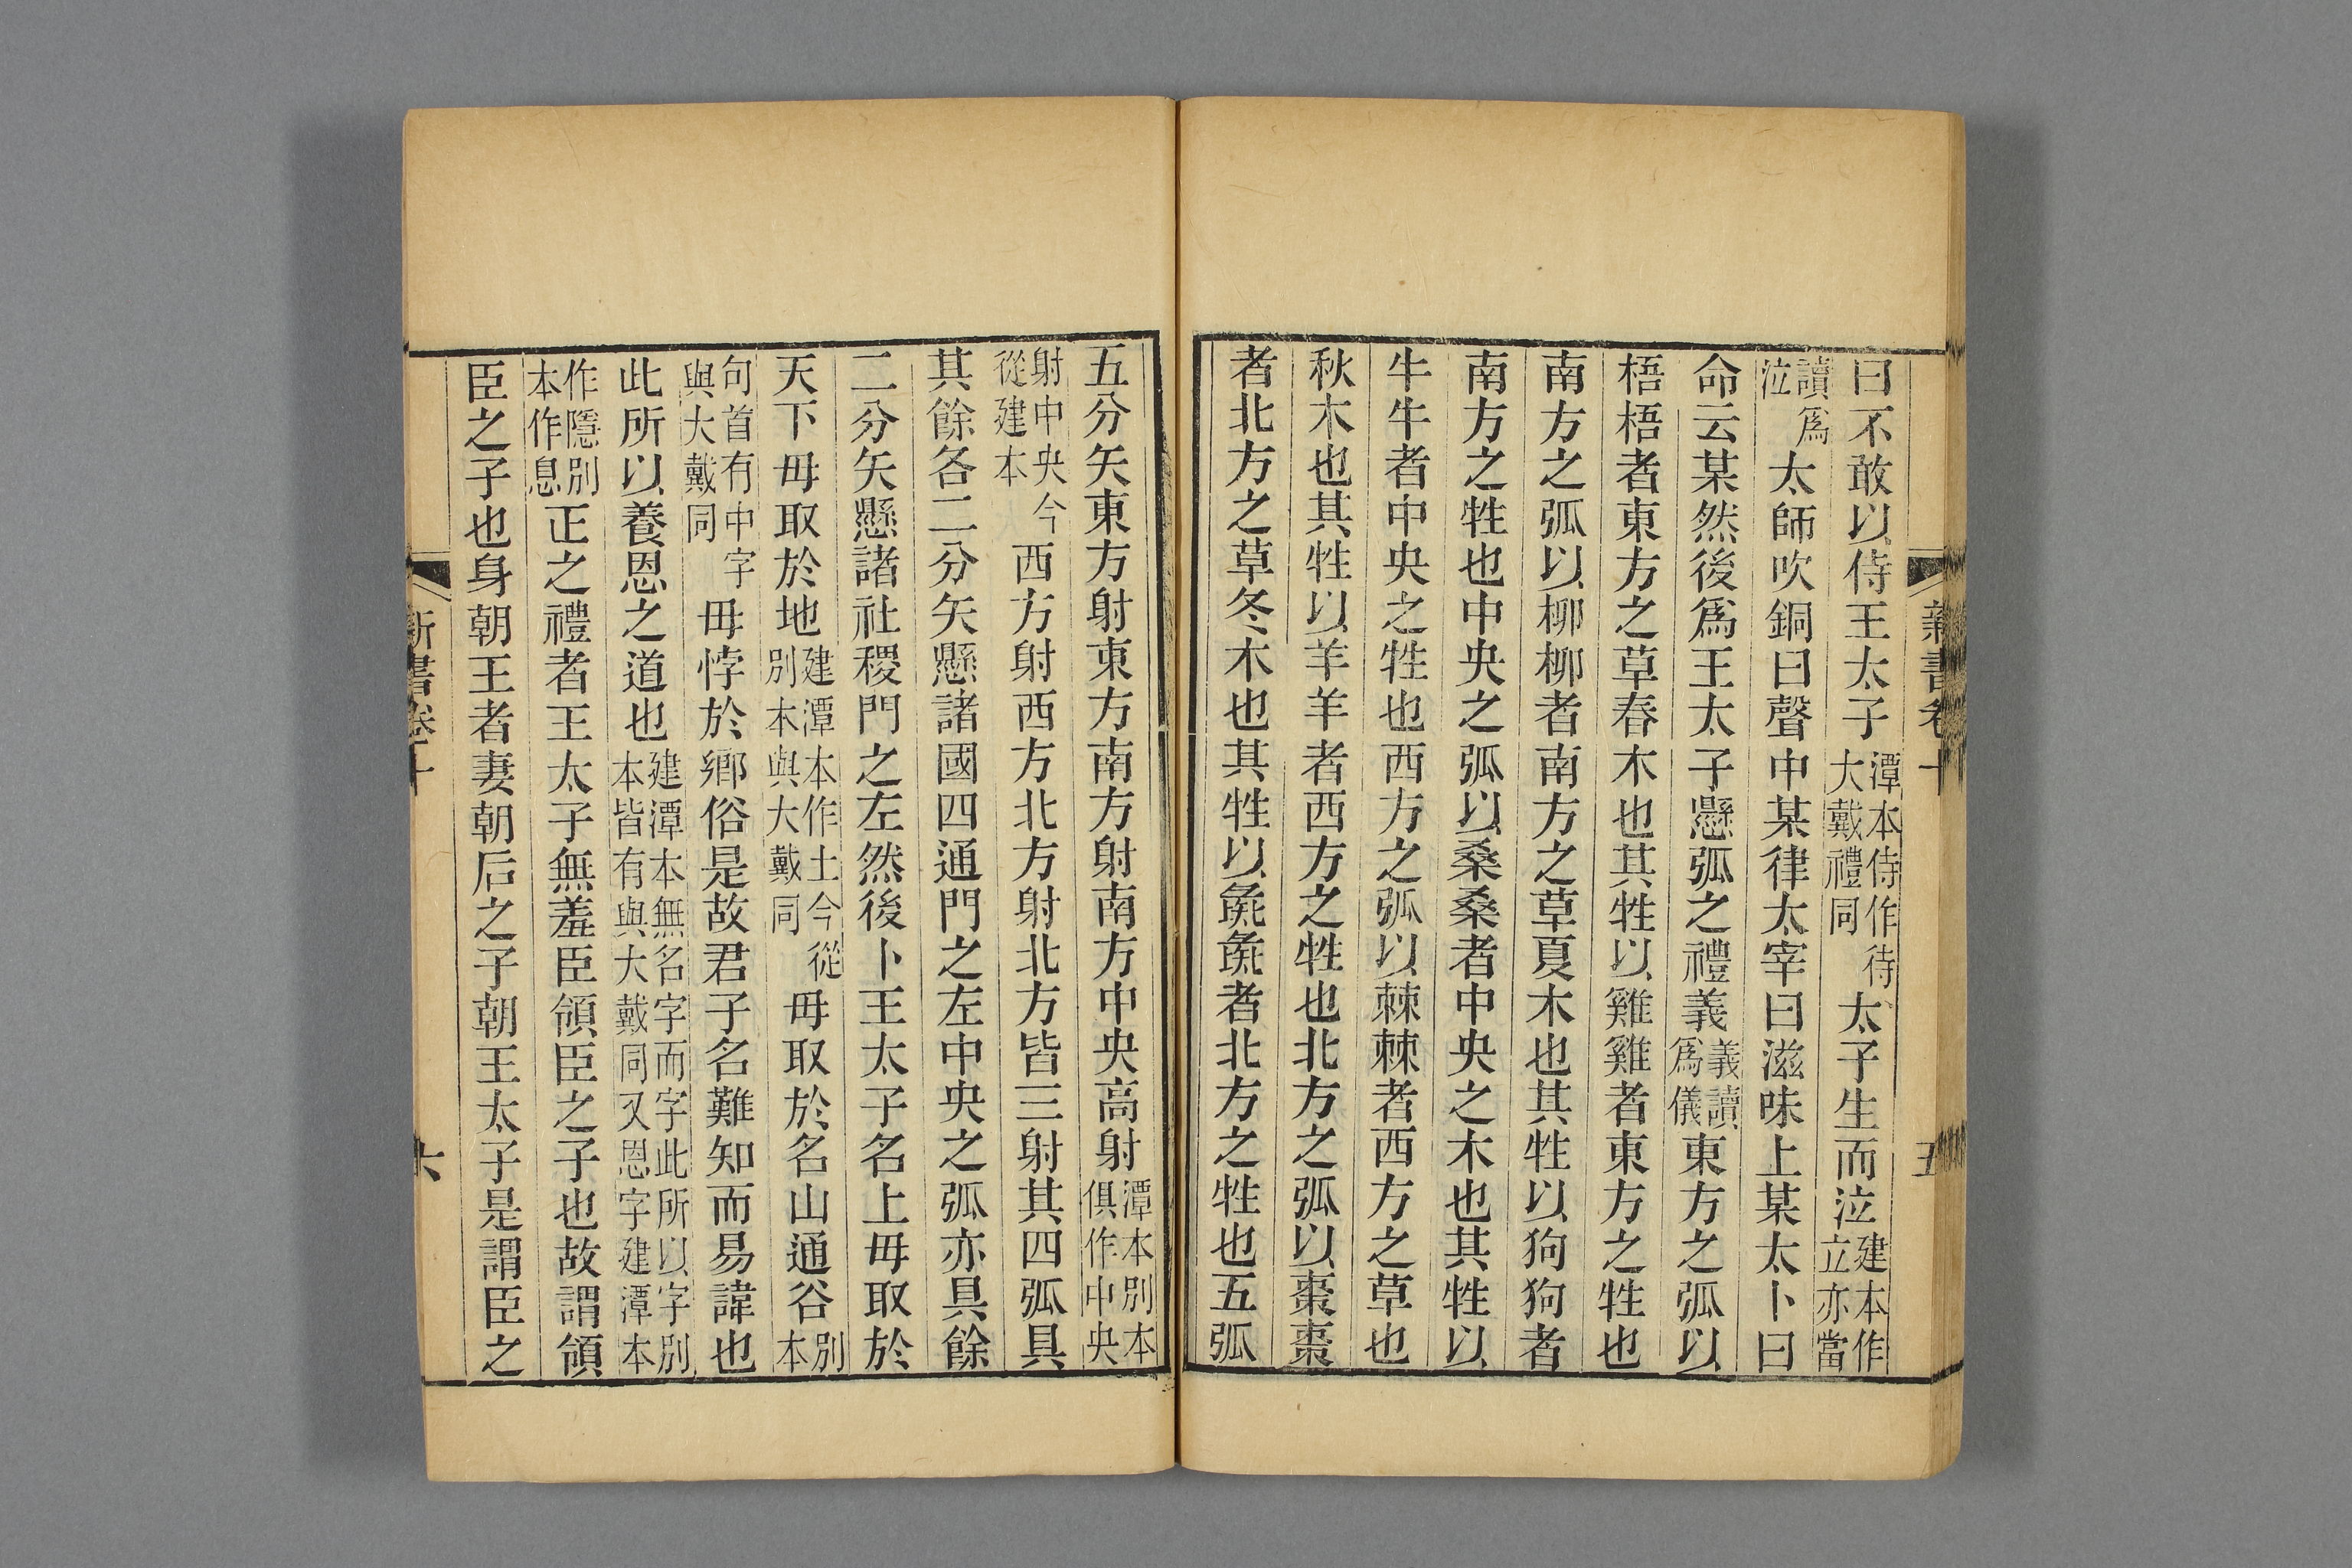 曰不敢以侍王太子潭本侍作待大戴禮同太子生而泣建本作立亦當
讀爲泣太師吹銅曰聲中某律太宰曰滋味上某太卜曰
命云某然後爲王太子懸弧之禮義義讀爲儀東方之弧以
梧梧者東方之草春木也其牲以雞雞者東方之牲也
南方之弧以柳柳者南方之草夏木也其牲以狗狗者
南方之牲也中央之弧以桑桑者中央之木也其牲以
牛牛者中央之牲也西方之弧以棘棘者西方之草也
秋木也其牲以羊羊者西方之牲也北方之弧以棗棗
者北方之草冬木也其牲以彘彘者北方之牲也五弧
新書卷十
五
五分矢東方射東方南方射南方中央高射潭本別本俱作中央
射中央今從建本西方射西方北方射北方皆三射其四弧具
其餘各二分矢懸諸國四通門之左中央之弧亦具餘
二分矢懸諸社稷門之左然後卜王太子名上毋取於
天下毋取於地建潭本作土今從別本與大戴同毋取於名山通谷別本
句首有中字與大戴同毋悖於鄉俗是故君子名難知而易諱也
此所以養恩之道也建潭本無名字而字此所以字別本皆有與大戴同又恩字建潭本
作隱別本作息正之禮者王太子無羞臣領臣之子也故謂領
臣之子也身朝王者妻朝后之子朝王太子是謂臣之
新書卷十
六